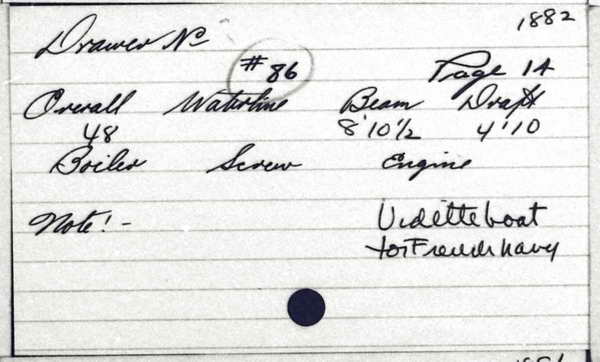 1882
Drawer No
# 86
Page 14
Overall Waterline Beam Draft
48 8'10½ 4'10
Boiler Screw Engine
Note! - Vidette boat
for French navy